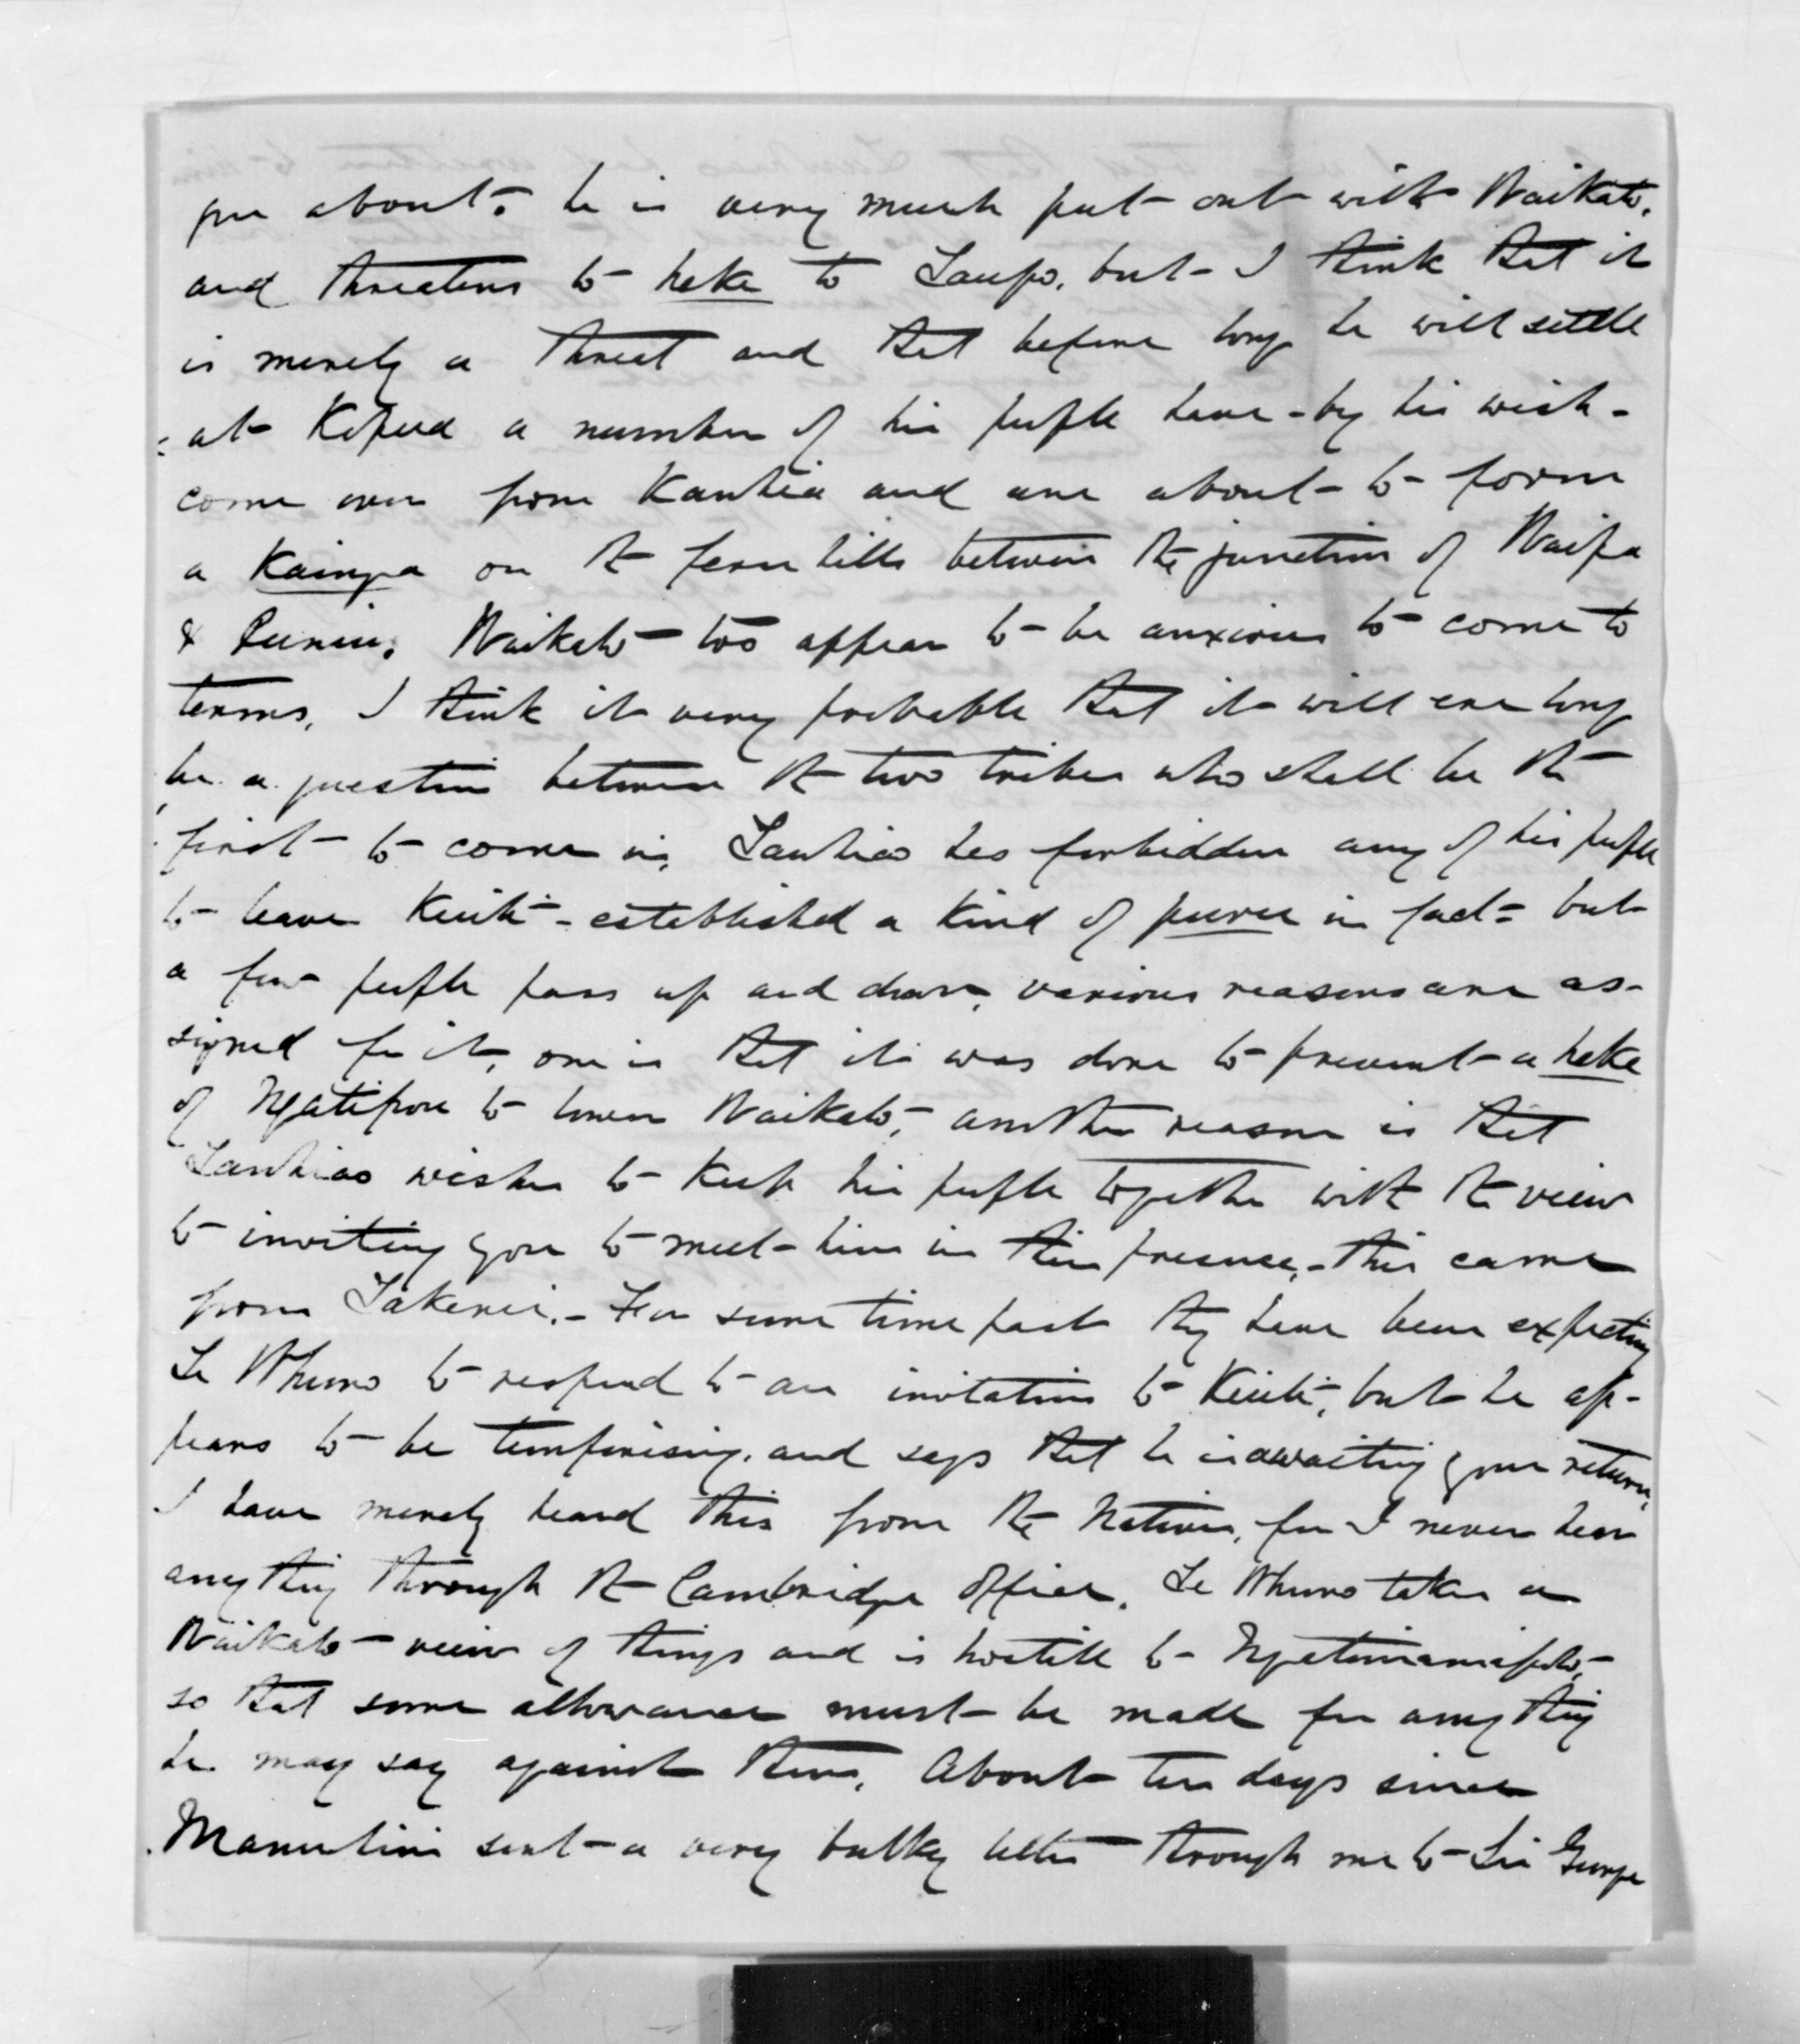 pu about. he is very much put out with Waikato.
and threatens to heke to Taupo, but I think that it
is merely a threat and that before long he will settle
at Kopua a number of his people have - by his wish -
come over from Kawhia and are about to form
a Kainga on the fern hills between the junction of Waipa
& Puniu. Waikato too appear to be anxious to come to
terms, I think it very probable that it will ere long
be a question between the two tribes who shall be the
first to come in. Tawhiao has forbidden any of his people
to leave Kuiti - established a kind of puru in fact = but
a few people pass up and down, various reasons are as-
signed for it, one is that it was done to prevent a heke
of Ngatipou to lower Waikato, another reason is that
Tawhiao wishes to keep his people together with the view
to inviting you to meet him in their presence, - this came
from Takerei. - For some time past they have been expecting
Te Whuro to respond to an invitation to Kuiti, but he ap-
pears to be temporising. and says that he is awaiting your return,
I have merely heard this from the Natives, for I never hear
anything through the Cambridge Office. Te Whuro takes a
Waikato view of things and is hostile to Ngatimaniapoto,
so that some allowance must be made for any thing
he may say against them. About ten days since
Manuhiri sent a very bulky letter through me to Sir George